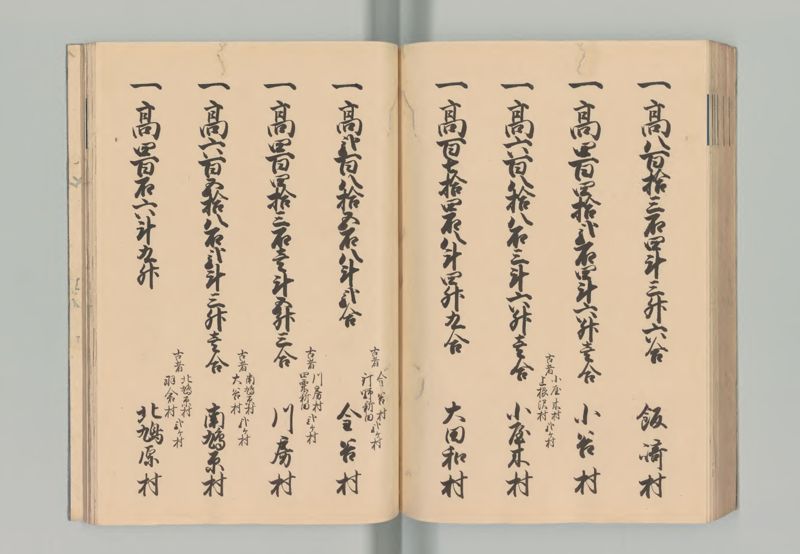 一 高八百拾三石四斗三升六合 飯崎村
一 高四百四拾弐石四斗六升壱合 小谷村
一 高六百八拾八石三斗六升壱合 小屋木村
古者 小屋木村 上根沢村 弐ヶ村
一 高百七拾四石八斗四升九合 大田和村
一 高弐百八拾五石八斗弐合 金谷村
古者 金谷村 新田 弐ヶ村
一 高四百四拾三石壱斗五升三合 川房村
古者 川房村 新田 弐ヶ村
一 高六百五拾八石弐斗三升壱合 南鳩原村
古者 南鳩原村 大谷村 弐ヶ村
一 高四百石六斗九升 北鳩原村
古者 北鳩原村 羽倉村 弐ヶ村